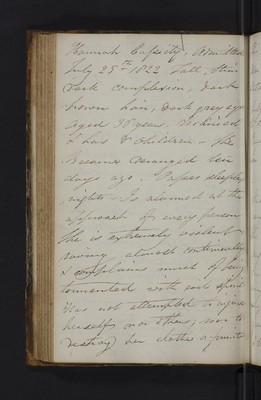 Hannah admitted
July 25th 1822 Tall, thin
dark complexion, dark
brown hair, dark grey eyes
aged 38 years. Married
& has 8 children - She
became deranged ten
days ago. Passes sleepless
nights - Is alarmed at the
approach of every person
She is extremely violent
raving almost continually
& complains much of being
tormented with evil spirits
Has not attempted to injure
herself nor others; nor to
destroy her clothes or furniture